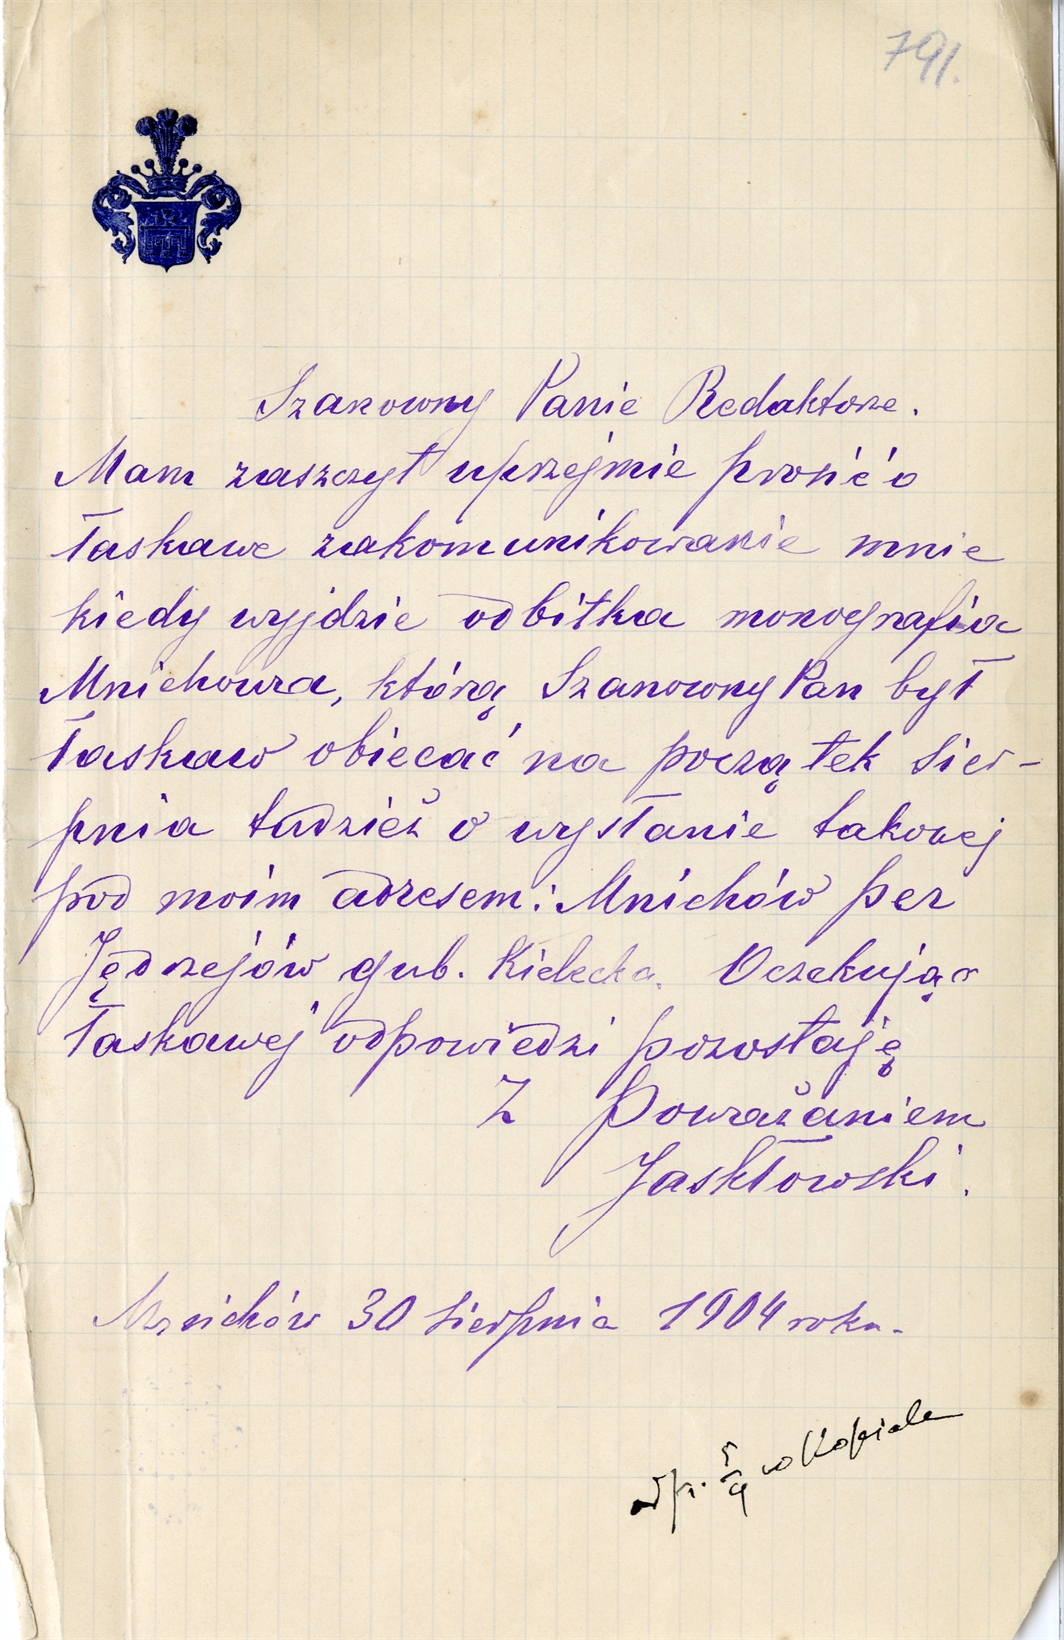 791.
Szanowny Panie Redaktorze.
Mam zaszczyt uprzejmie prosić o
łaskawe zakomunikowanie mnie
kiedy wyjdzie odbitka monografia
Mnichowa, którą Szanowny Pan był
łaskaw obiecać na początek sier-
pnia tudzież o wysłanie takowej
pod moim adresem: Mnichów per
Jędrzejów gub. Kielecka. Oczekując
łaskawej odpowiedzi pozostaję
Z Poważaniem
Mnichów 30 sierpnia 1904 roku.
odp. 5/9 w Kopiale